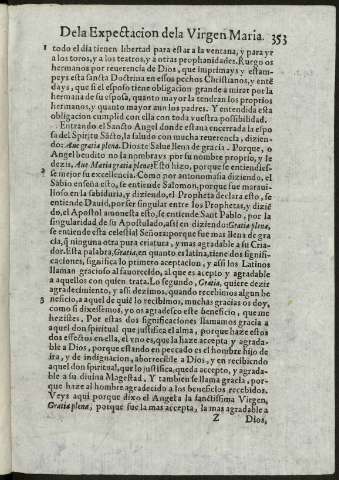 Dela Expectacion dela Virgen Maria. 353
1 todo el dia tienen libertad para estar a la ventana, y para yr
a los toros, y a los teatros, y a otras prophanidades. Ruegoos
hermanos por reuerencia de Dios, que imprimays y estam-
peys esta sancta Doctrina en essos pechos Christianos, y entē
days, que si el esposo tiene obligacion grande a mirar por la
hermana de su esposa, quanto mayor la tendran los proprios
hermanos, y quanto mayor aun los padres. Y entendida esta
obligacion cumplid con ella con toda vuestra possibilidad.
Entrando el Sancto Angel donde estaua encerrada la espo
sa del Spiritu Sācto, la saludo con mucha reuerencia, dizien-
do: Aue gratia plena. Dios te Salue llena de gracia. Porque, o
Angel bendito no la nombrays por su nombre proprio, y le
dezis, Aue Maria gratia plena? Esto hizo, porque se entendies-
2 se mejor su excellencia. Como por antonomasia diziendo, el
Sabio enseña esto, se entiende Salomon, porque fue maraui-
lloso en la sabiduria, y diziendo, el Propheta declara esto, se
entiende Dauid, por ser singular entre los Prophetas, y diziē
do, el Apostol amonesta esto, se entiende Sant Pablo, por la
singularidad de su Apostolado, assi en diziendo: Gratia plena,
se entiende esta celestial Señora: porque fue mas llena de gra
cia, q̄ ninguna otra pura criatura, y mas agradable a su Cria-
dor. Esta palabra, Gratia, en quanto es latina, tiene dos signifi-
caciones, significa lo primero acceptacion, y assi los Latinos
llaman gracioso al fauorecido, al que es acepto y agradable
a aquellos con quien trata. Lo segundo, Gratia, quiere dezir
agradecimiento, y assi dezimos, quando recebimos algun be
3 neficio, a aquel de quiē lo recibimos, muchas gracias os doy,
como si dixessemos, yo os agradesco este beneficio, que me
hezistes. Por estas dos significaciones llamamos gracia a
aquel don spiritual que justifica el alma, porque haze estos
dos effectos en ella, el vno es, que la haze accepta y agrada-
ble a Dios, porque estando en peccado es el hombre hijo de
ira, y de indignacion, aborrecible a Dios, y en recibiendo
aquel don spiritual, que lo justifica, queda accepto, y agrada-
ble a su diuina Magestad. Y tambien se llama gracia, por-
que haze al hombre agradecido a los beneficios recebidos.
Veys aqui porque dixo el Angel a la sanctissima Virgen,
Gratia plena, porque fue la mas accepta, la mas agradable a
Z Dios,